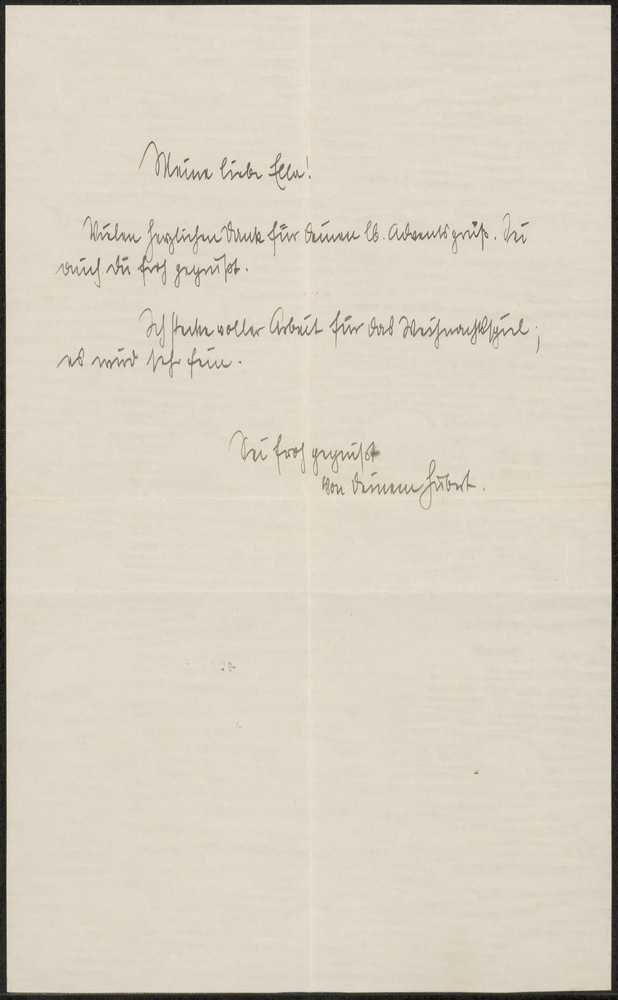 Meine liebe Ella!
Vielen herzlichen Dank für Deinen lb. Adventsgruß. Sei
auch Du froh gegrüßt.
Ich stecke voller Arbeit für das Weihnachtsspiel;
es wird sehr fein.
Sei froh gegrüßt
von Deinem Hubert.